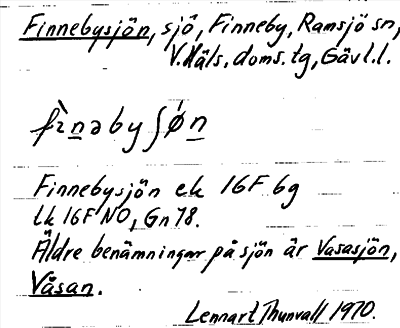 Finnebysjön, sjö, Finneby, Ramsjö sn,
V. Häls. doms. tg, Gävl. l.
fìnəbyʃǿn
Finnebysjön ek 16F 6g
lk 16F NO, Gn 78.
Äldre benämningar på sjön är Vasasjön,
Våsan.
Lennart Thunvall 1970.